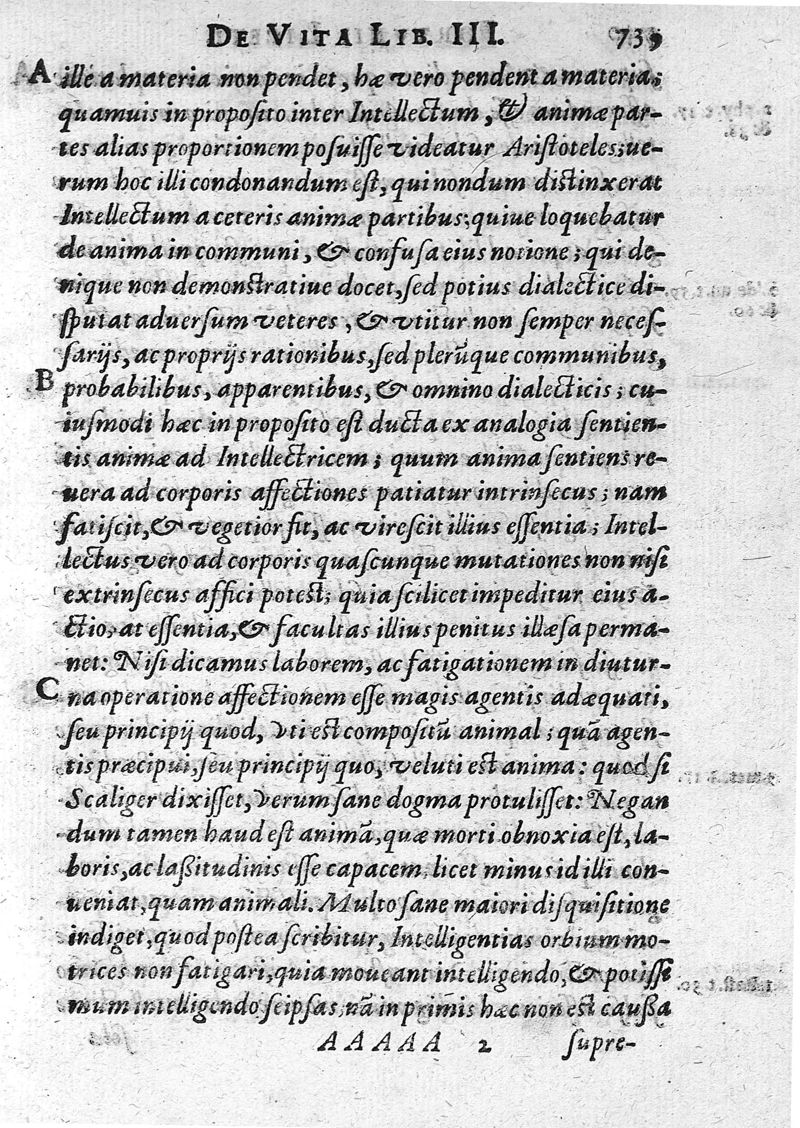 DE VITA LIB. III. 739
A ille a materia non pendet, hæ vero pendent a materia;
quamuis in proposito inter Intellectum, & animæ par-
tes alias proportionem posuisse videatur Aristoteles; ue-
rum hoc illi condonandum est, qui nondum distinxerat
Intellectum a ceteris animæ partibus; quiue loquebatur
de anima in communi, & confusa eius notione; qui de-
nique non demonstratiue docet, sed potius dialectice di-
sputat aduersum veteres, & vtitur non semper neces-
sarijs, ac proprijs rationibus, sed plerũque communibus,
B probabilibus, apparentibus, & omnino dialecticis; cu-
iusmodi hæc in proposito est ducta ex analogia sentien-
tis animæ ad Intellectricem; quum anima sentiens re-
uera ad corporis affectiones patiatur intrinsecus; nam
fatiscit, & vegetior fit, ac virescit illius essentia; Intel-
lectus vero ad corporis quascunque mutationes non nisi
extrinsecus affici potest; quia scilicet impeditur eius a-
ctio, at essentia, & facultas illius penitus illæsa perma-
net: Nisi dicamus laborem, ac fatigationem in diutur-
C na operatione affectionem esse magis agentis adæquati,
seu principij quod, vti est compositũ animal; quã agen-
tis præcipui, seu principij quo, veluti est anima: quod si
Scaliger dixisset, verum sane dogma protulisset: Negan
dum tamen haud est animã, quæ morti obnoxia est, la-
boris, ac laßitudinis esse capacem, licet minus id illi con-
ueniat, quam animali. Multo sane maiori disquisitione
indiget, quod postea scribitur, Intelligentias orbium mo-
trices non fatigari, quia moueant intelligendo, & potissi
mum intelligendo seipsas; nã in primis hæc non est caußa
AAAAA 2 supre-